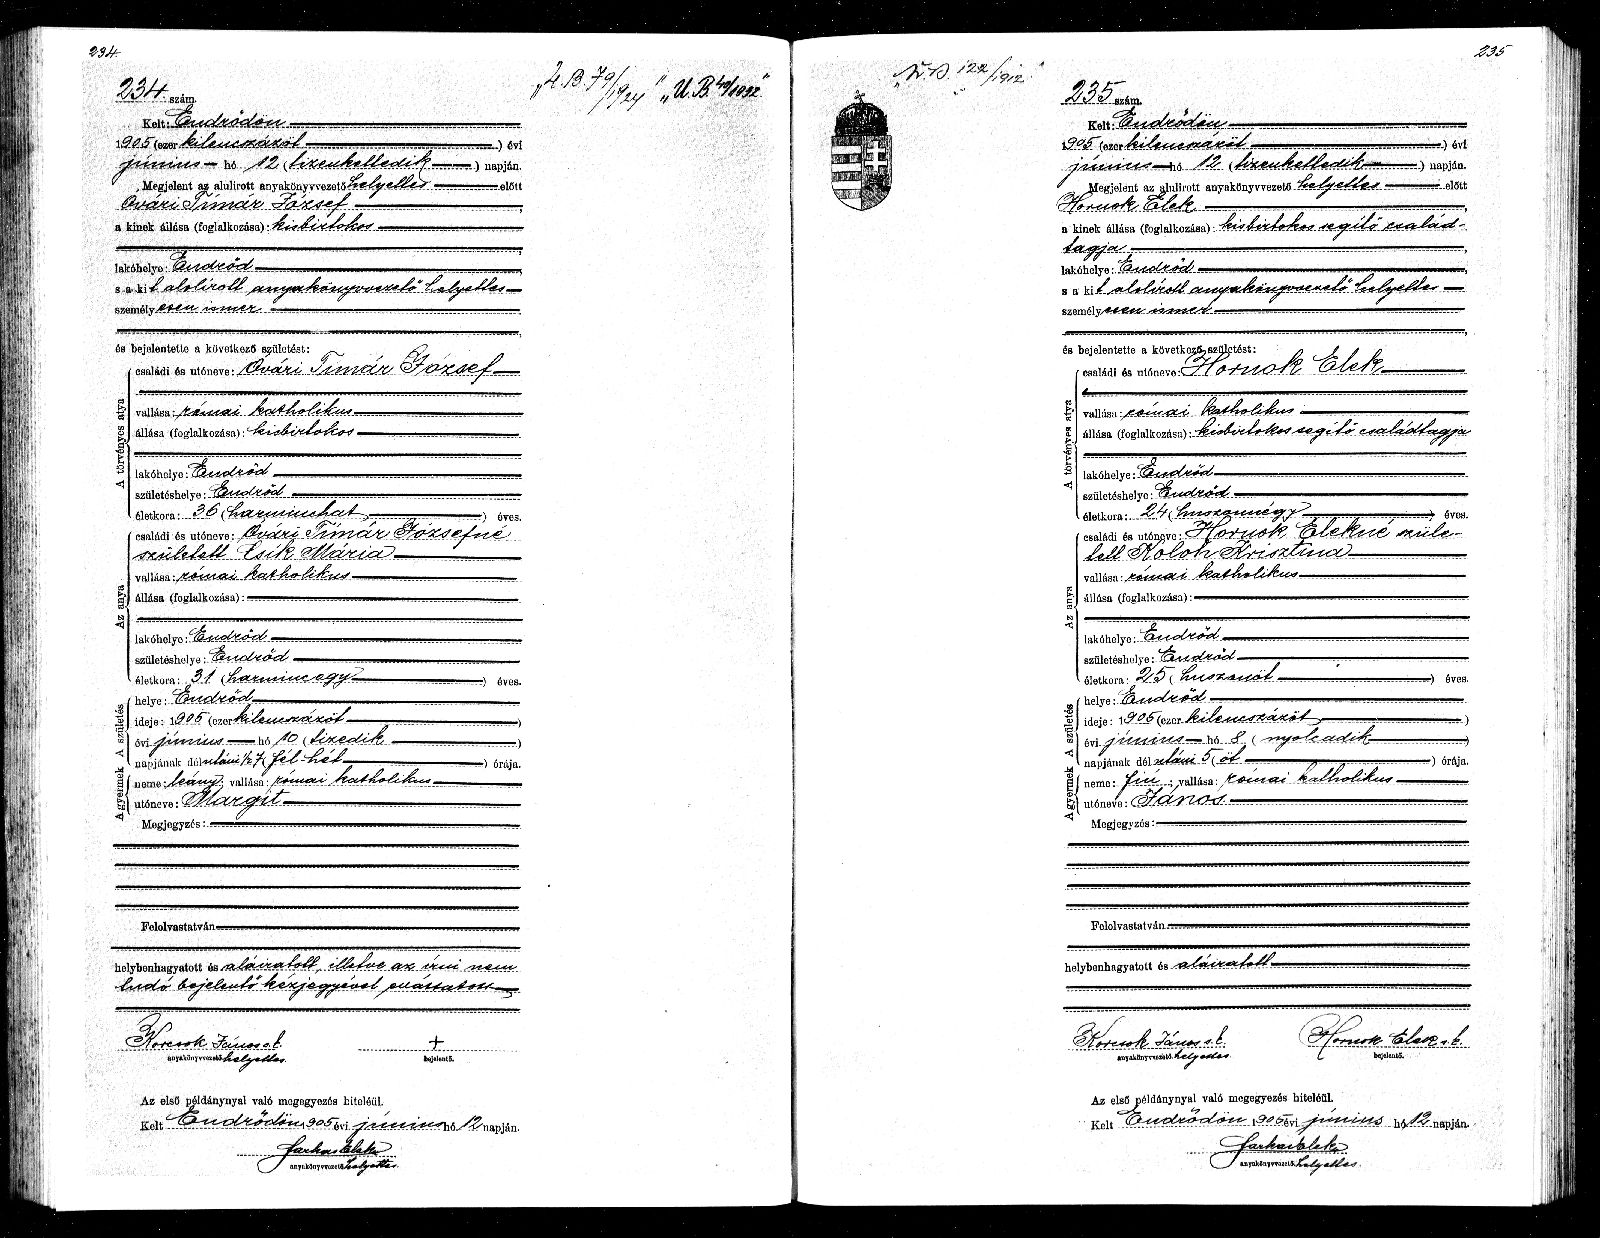 234.
234. szám.
„U.B. 79/1924" „U.B. 40/1932."
Kelt: Endrődön
1905 (ezer kilencszázöt ) évi
június hó 12 (tizenkettedik ) napján.
Megjelent az alulirott anyakönyvvezető helyettes előtt
Óvári Tímár József ,
a kinek állása (foglalkozása): kisbirtokos
lakóhelye: Endrőd ,
s a kit alólirott anyakönyvvezető helyettes
személyesen ismer
és bejelentette a következő születést:
A törvényes atya
családi és utóneve: Óvári Tímár József
vallása: római katholikus
állása (foglalkozása): kisbirtokos
lakóhelye: Endrőd
születéshelye: Endrőd
életkora: 36 (harminchat ) éves.
Az anya
családi és utóneve: Óvári Tímár Józsefné
született Csik Mária
vallása: római katholikus
állása (foglalkozása):
lakóhelye: Endrőd
születéshelye: Endrőd
életkora: 31 (harmincegy ) éves.
A születés
helye: Endrőd
ideje: 1905 (ezer kilencszázöt )
évi június hó 10 (tizedik )
napjának délutáni ½7 (fél hét ) órája.
A gyermek
neme: leány; vallása: római katholikus
utóneve: Margit
Megjegyzés:
Felolvastatván
helybenhagyatott és aláiratott, illetve az írni nem
tudó bejelentő kézjegyével ellátatott
Korcsok János s.k. +
anyakönyvvezető helyettes bejelentő.
Az első példánynyal való megegyezés hiteléül.
Kelt Endrődön 1905 évi június hó 12 napján.
Farkas Elek
anyakönyvvezető helyettes
235
„ 122/1912."
235 szám.
Kelt: Endrődön
1905 (ezer kilencszázöt ) évi
június hó 12 (tizenkettedik ) napján.
Megjelent az alulirott anyakönyvvezető helyettes előtt
Hornok Elek ,
a kinek állása (foglalkozása): kisbirtokos segítő család-
tagja
lakóhelye: Endrőd ,
s a kit alólirott anyakönyvvezető helyettes
személyesen ismer
és bejelentette a következő születést:
A törvényes atya
családi és utóneve: Hornok Elek
vallása: római katholikus
állása (foglalkozása): kisbirtokos segítő családtagja
lakóhelye: Endrőd
születéshelye: Endrőd
életkora: 24 (huszonnégy ) éves.
Az anya
családi és utóneve: Hornok Elekné szüle-
tett Koloh Krisztina
vallása: római katholikus
állása (foglalkozása):
lakóhelye: Endrőd
születéshelye: Endrőd
életkora: 25 (huszonöt ) éves.
A születés
helye: Endrőd
ideje: 1905 (ezer kilencszázöt )
évi június hó 8 (nyolcadik )
napjának délutáni 5 (öt ) órája.
A gyermek
neme: fiú; vallása: római katholikus
utóneve: János
Megjegyzés:
Felolvastatván
helybenhagyatott és aláiratott
Korcsok János s.k. Hornok Elek s.k.
anyakönyvvezető helyettes. bejelentő.
Az első példánynyal való megegyezés hiteléül.
Kelt Endrődön 1905 évi június hó 12 napján.
Farkas Elek
anyakönyvvezető helyettes.